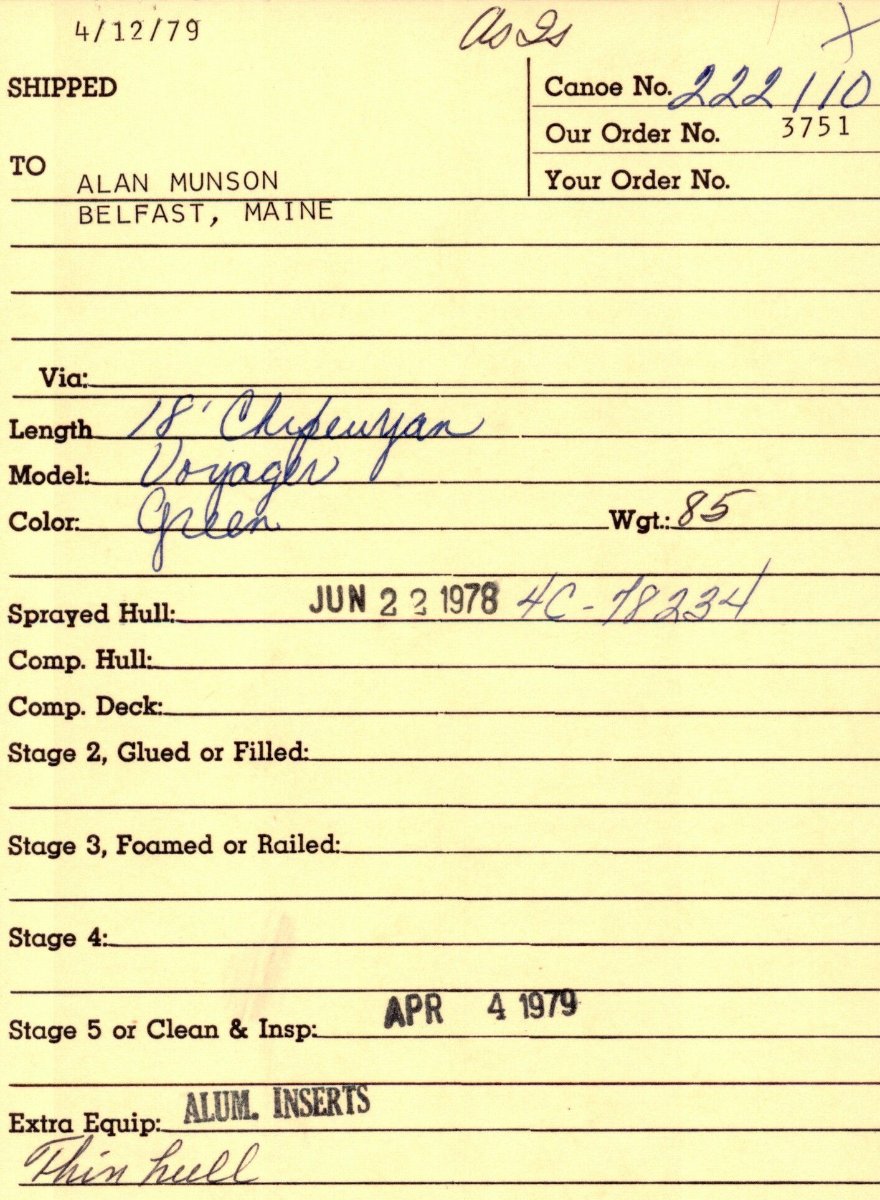 4/12/79
As Is
X
SHIPPED
Canoe No. 222 110
Our Order No. 3751
TO
Your Order No.
ALAN MUNSON
BELFAST, MAINE
Via:
Length 18' Chipewyan
Model: Voyager
Color: Green Wgt.: 85
Sprayed Hull: JUN 22 1978 4C-78234
Comp. Hull:
Comp. Deck:
Stage 2, Glued or Filled:
Stage 3, Foamed or Railed:
Stage 4:
Stage 5 or Clean & Insp: APR 4 1979
Extra Equip: ALUM. INSERTS
Thin hull